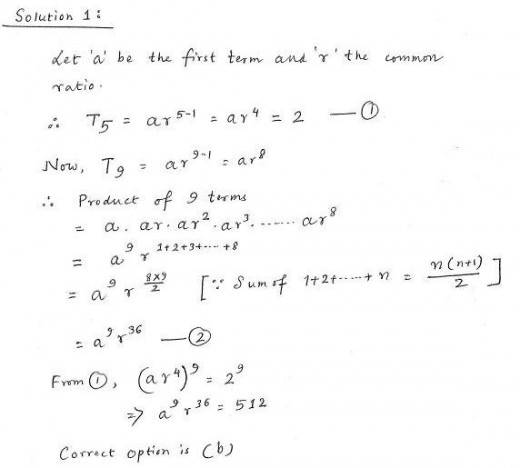 Solution 1:
Let 'a' be the first term and 'r' the common
ratio.
∴ T₅ = ar⁵⁻¹ = ar⁴ = 2 — ①
Now, T₉ = ar⁹⁻¹ = ar⁸
∴ Product of 9 terms
= a. ar. ar². ar³. ...... ar⁸
= a⁹ r^(1+2+3+....+8)
= a⁹ r^(8×9/2) [∵ Sum of 1+2+.....+ n = n(n+1)/2]
= a⁹r³⁶ — ②
From ①, (ar⁴)⁹ = 2⁹
=> a⁹r³⁶ = 512
Correct option is (b)